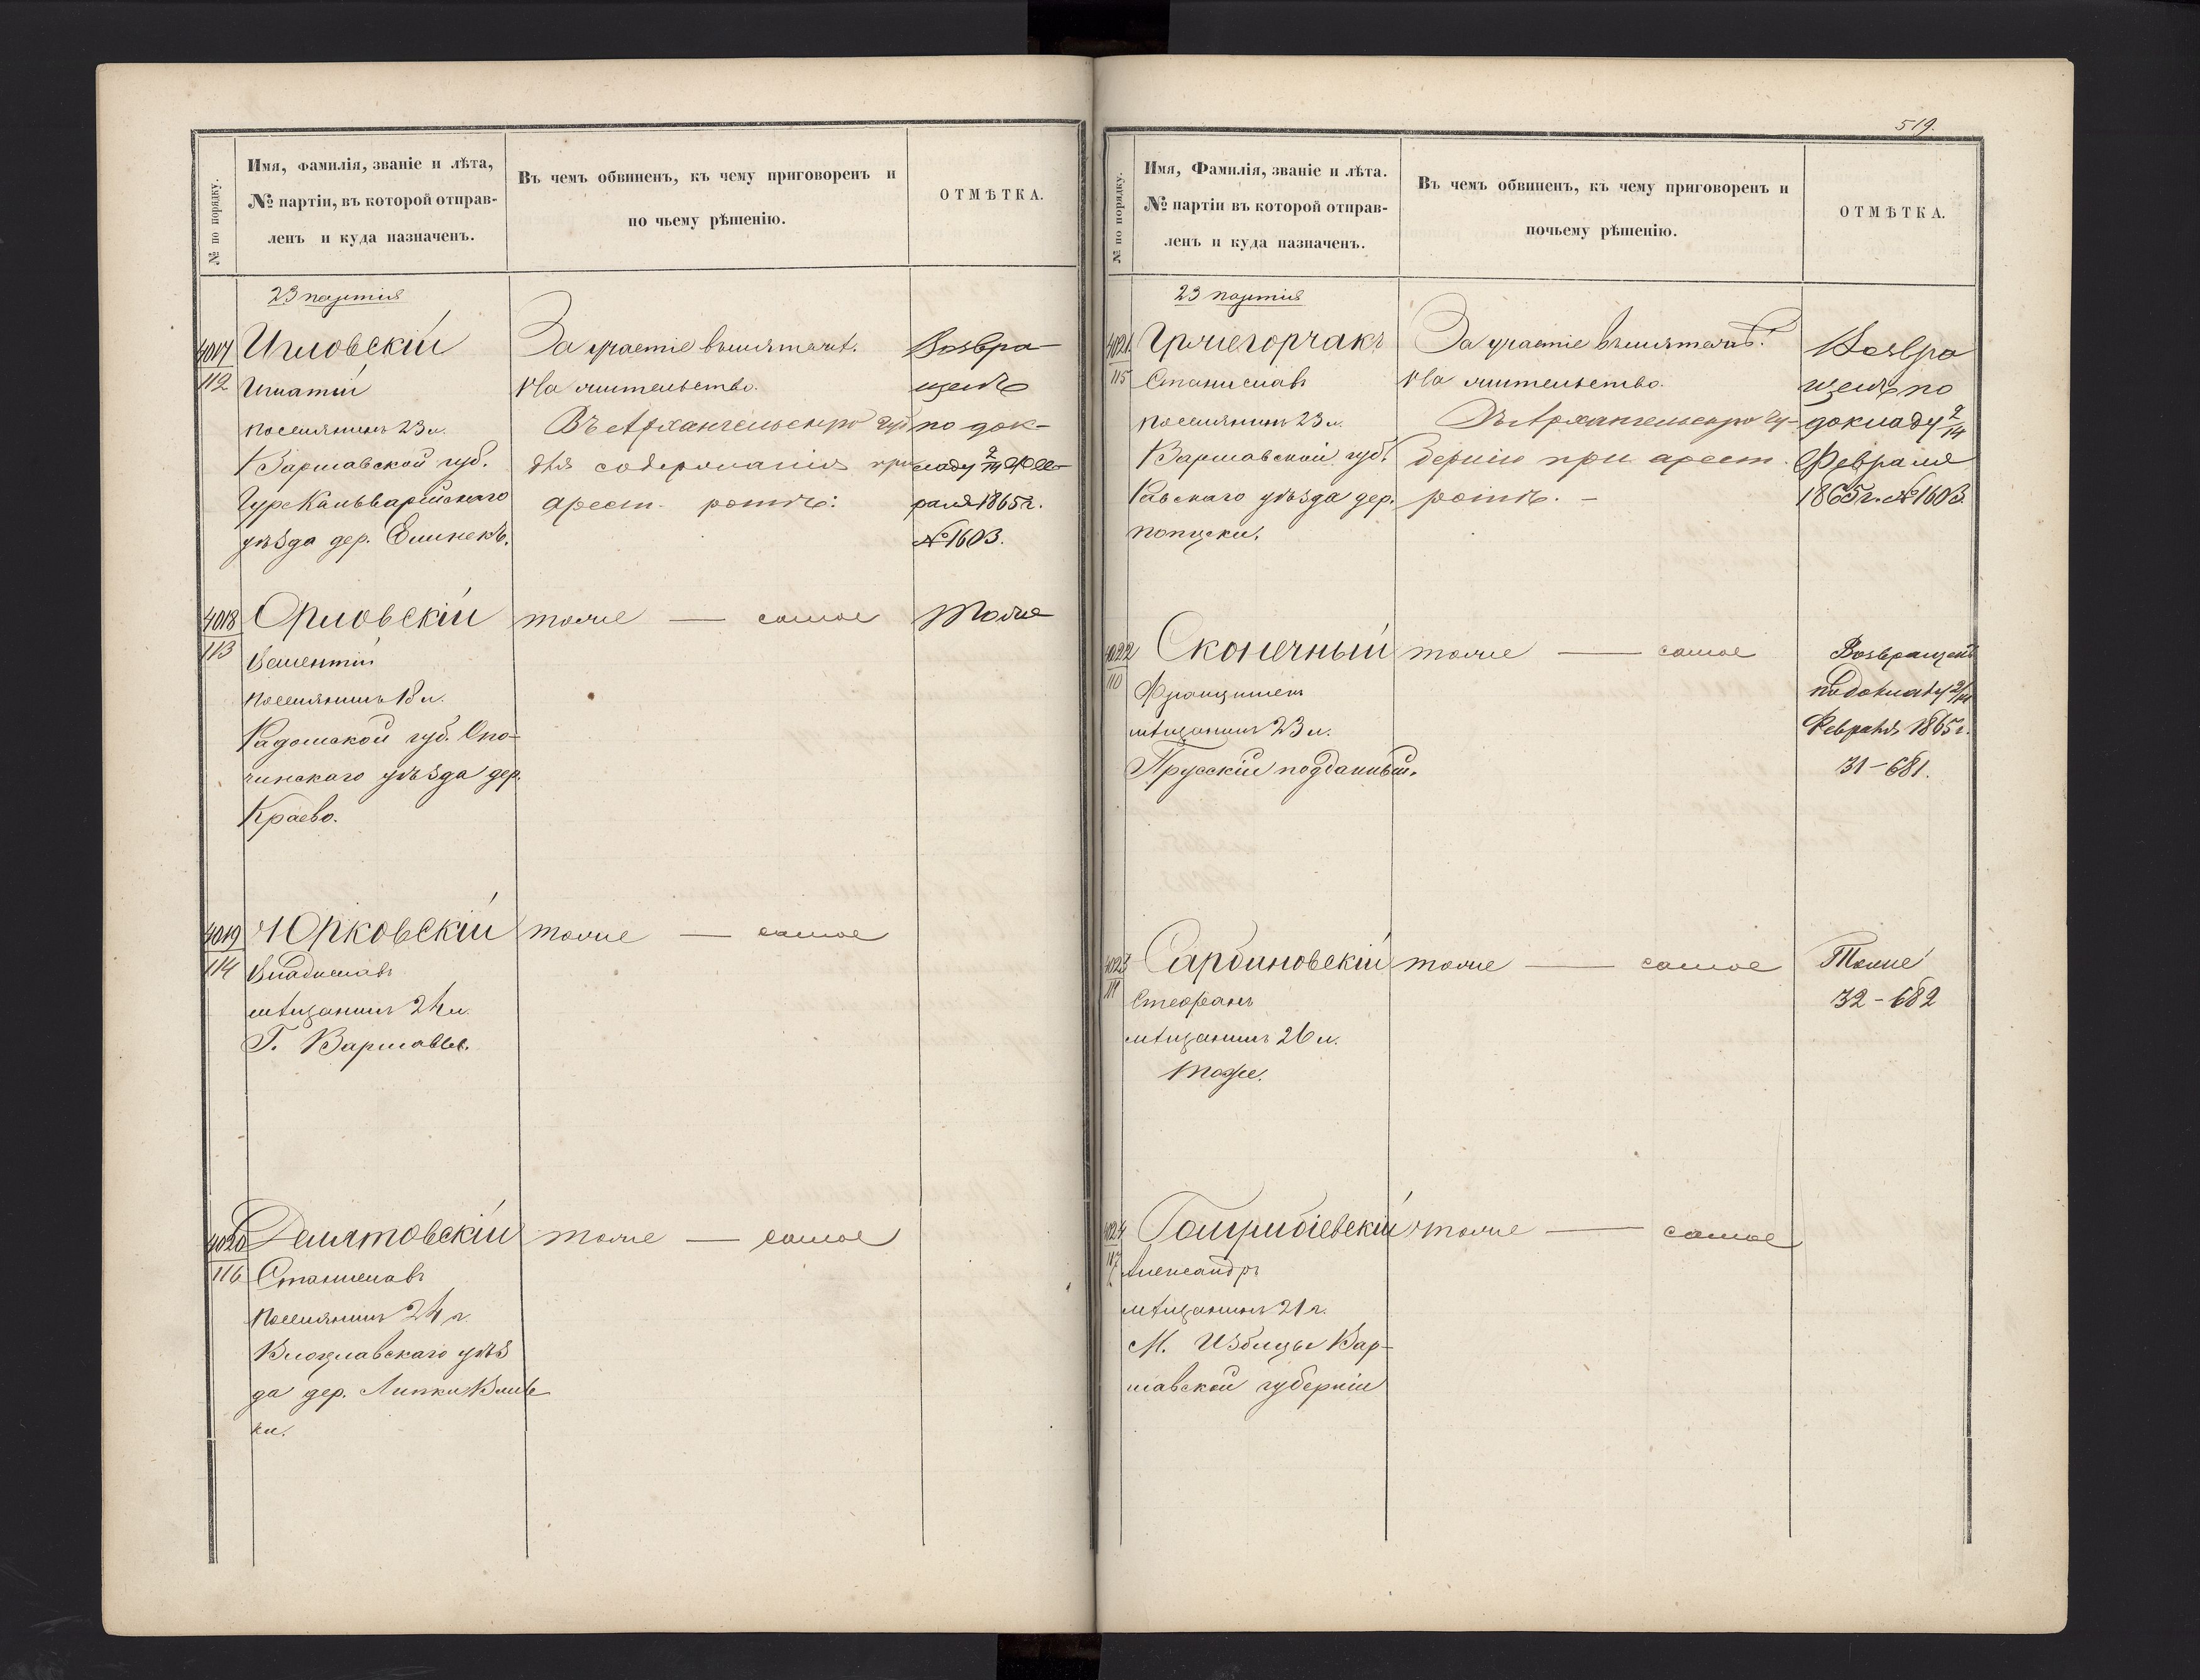 № по порядку.
Имя, фамилія, званіе и лѣта,
№ партіи, въ которой отправ-
ленъ и куда назначенъ.
Въ чемъ обвиненъ, къ чему приговоренъ и
по чьему рѣшенію.
ОТМѢТКА.
23 партія
4017
112
Игловскій
Игнатій
поселянинъ 23 л.
Варшавской губ.
Гуркальварійскаго
уѣзда дер.
За участіе въ мятеж.
На жительство.
Въ Архангельскую губ
для содержанія при
арест. ротѣ:
Возвра-
щенъ
по док-
ладу 2/14 Фев-
раля 1865 г.
№ 1603.
4018
113
Орловскій
Валентій
поселянинъ 18 л.
Радомской губ. Опо-
чинскаго уѣзда дер.
Краево.
тоже — самое
Тоже
4019
114
Юрковскій
Владиславъ
мѣщанинъ 24 л.
Г. Варшавы.
тоже — самое
4020
116
Станиславъ
поселянинъ 24 л.
Влоцлавскаго уѣз
да дер. Липки Вель
ки.
тоже — самое
519.
№ по порядку.
Имя, Фамилія, званіе и лѣта.
№ партіи въ которой отправ-
ленъ и куда назначенъ.
Въ чемъ обвиненъ, къ чему приговоренъ и
почьему рѣшенію.
ОТМѢТКА.
23 партія
4021
115
Гржегорчакъ
Станиславъ
поселянинъ 23 л.
Варшавской губ.
Равскаго уѣзда дер.
За участіе въ мятеж.
На жительство.
Въ Архангельскую гу-
бернію при арест.
ротѣ. —
Возвра
щенъ по
докладу 2/14
Февраля
1865 г. № 1603.
4022
110
Сконечный
Францишекъ
мѣщанинъ 23 л.
Прусскій подданный.
тоже — самое
Возвращенъ
по докладу 2/14
Февраля 1865 г.
31-681.
4023
Сарбиновскій
Стефанъ
мѣщанинъ 26 л.
тоже.
тоже — самое
Тоже
32-682
4024
117
Александръ
мѣщанинъ 21 л.
М. Избицы Вар-
шавской губерніи
тоже — самое